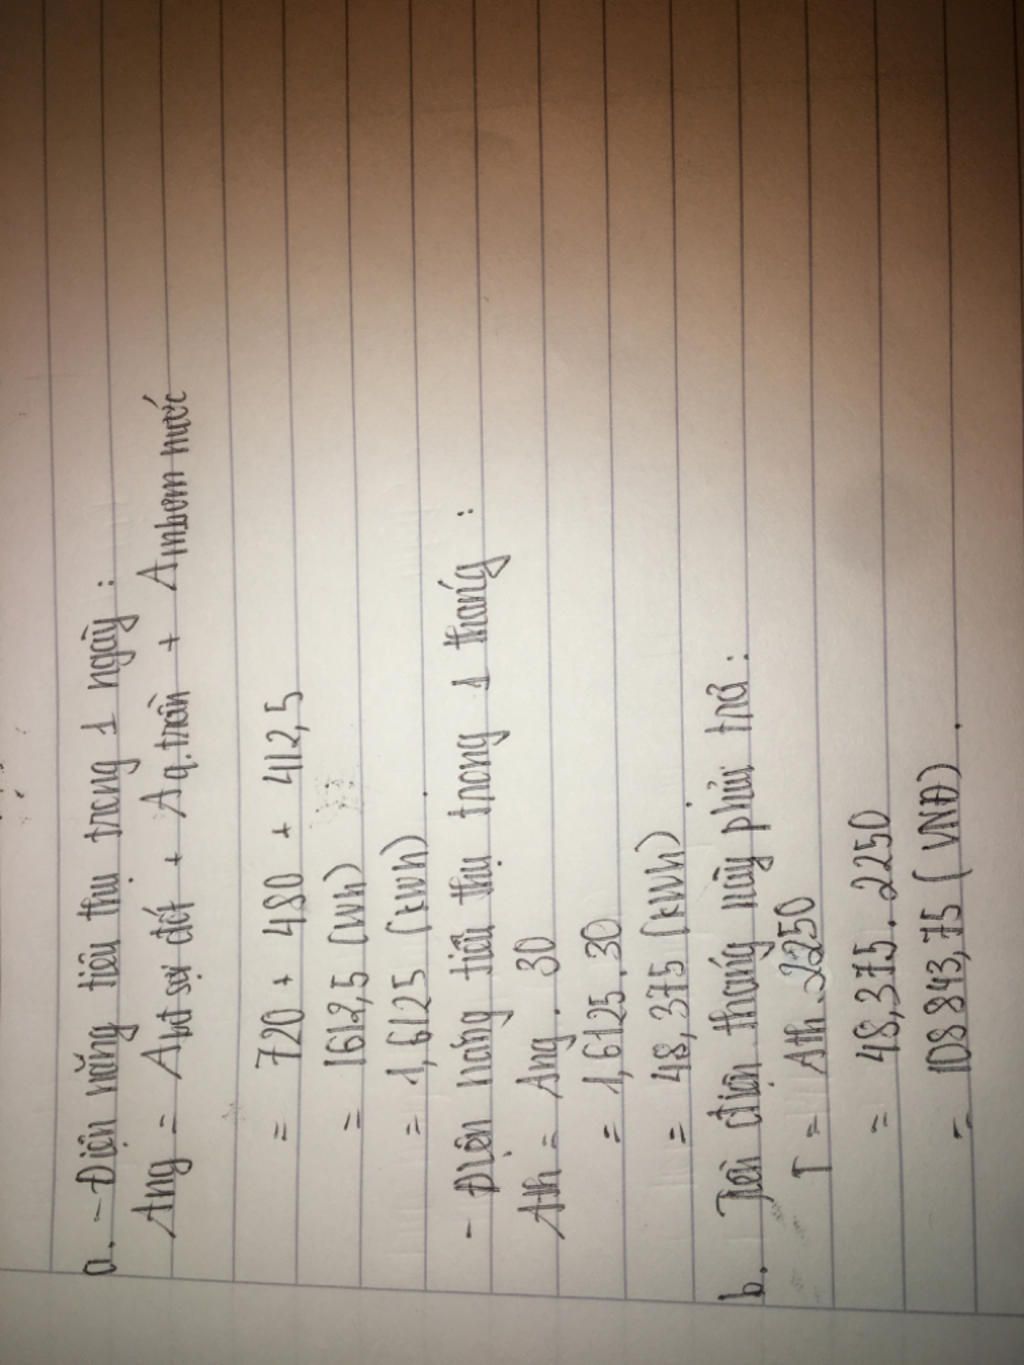 a. - Điện năng tiêu thụ trong 1 ngày :
Ang = Abđ sợi đốt + Aq.trần + Ambơm nước
= 720 + 480 + 412,5
= 1612,5 (Wh)
= 1,6125 (kWh) .
- Điện năng tiêu thụ trong 1 tháng :
Ath = Ang . 30
= 1,6125 . 30
= 48,375 (kWh) .
b. Tiền điện tháng này phải trả :
T = Ath . 2250
= 48,375 . 2250
= 108 843,75 ( VNĐ) .